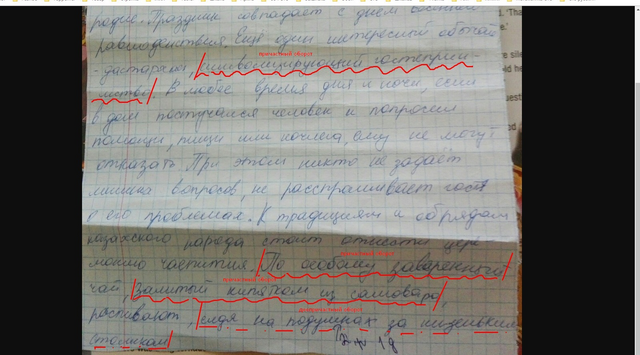 родне. Праздник совпадает с днём весеннего
равноденствия. Ещё один интересный обычай
причастный оборот
- дастархан, символизирующий гостеприим-
ство. В любое время дня и ночи, если
в дом постучался человек и попросил
помощи, пищи или ночлега, ему не могут
отказать. При этом никто не задаёт
лишних вопросов, не расспрашивает гостя
о его проблемах. К традициям и обрядам
казахского народа стоит отнести цере-
монию чаепития. По особому заваренный
причастный оборот
чай, залитый кипятком из самовара,
распивают, сидя на подушках за низеньким
столиком